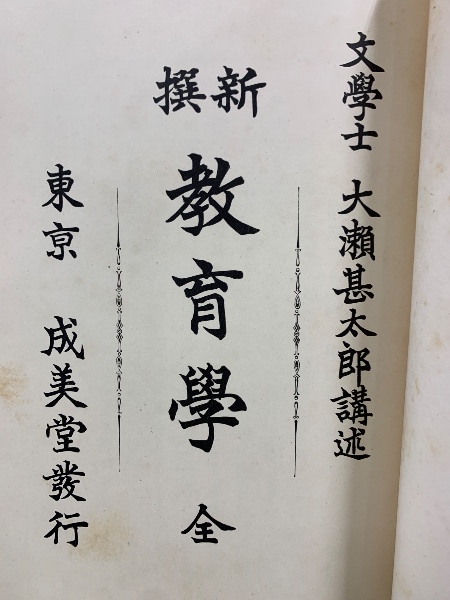 文學士 大瀬甚太郎講述
新撰
教育學 全
東京 成美堂發行